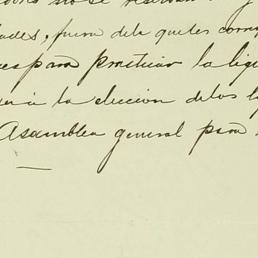 no se
dades, fuera de la que les corre
es para practicar la liqu
a la elección de los
Asamblea general para